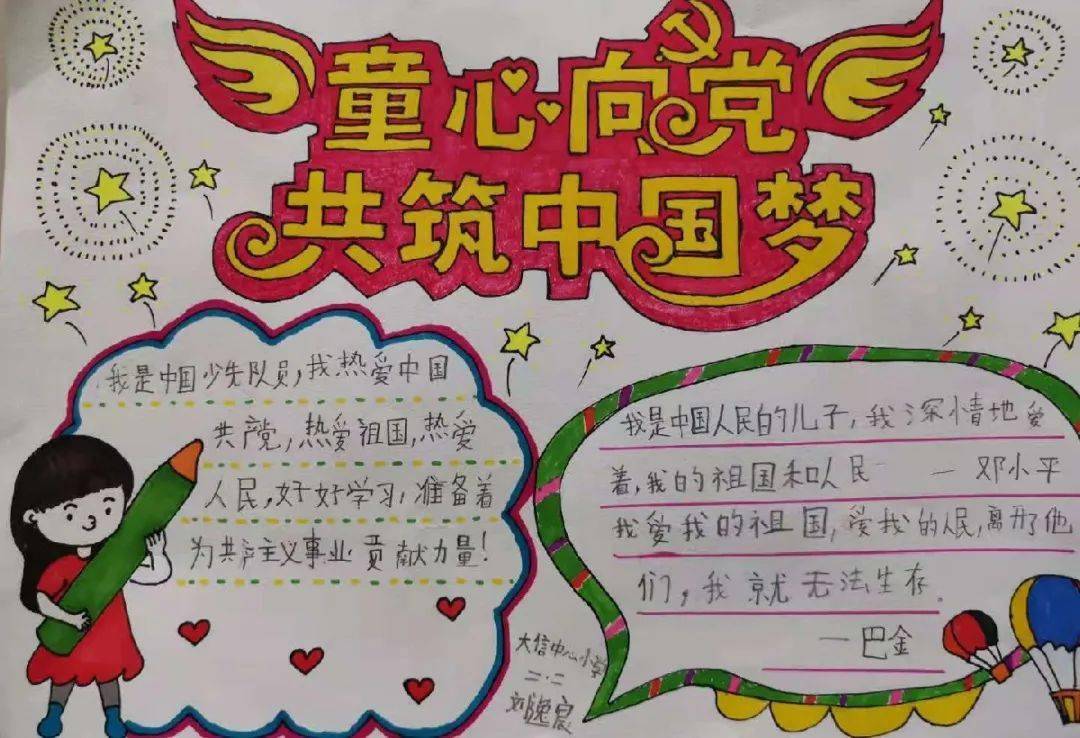 童心向党
共筑中国梦
我是中国少先队员,我热爱中国
共产党,热爱祖国,热爱
人民,好好学习,准备着
为共产主义事业贡献力量!
我是中国人民的儿子,我深情地爱
着,我的祖国和人民 — 邓小平
我爱我的祖国,爱我的人民,离开了他
们,我就无法生存.
— 巴金
大信中心小学
二·二
刘逸宸